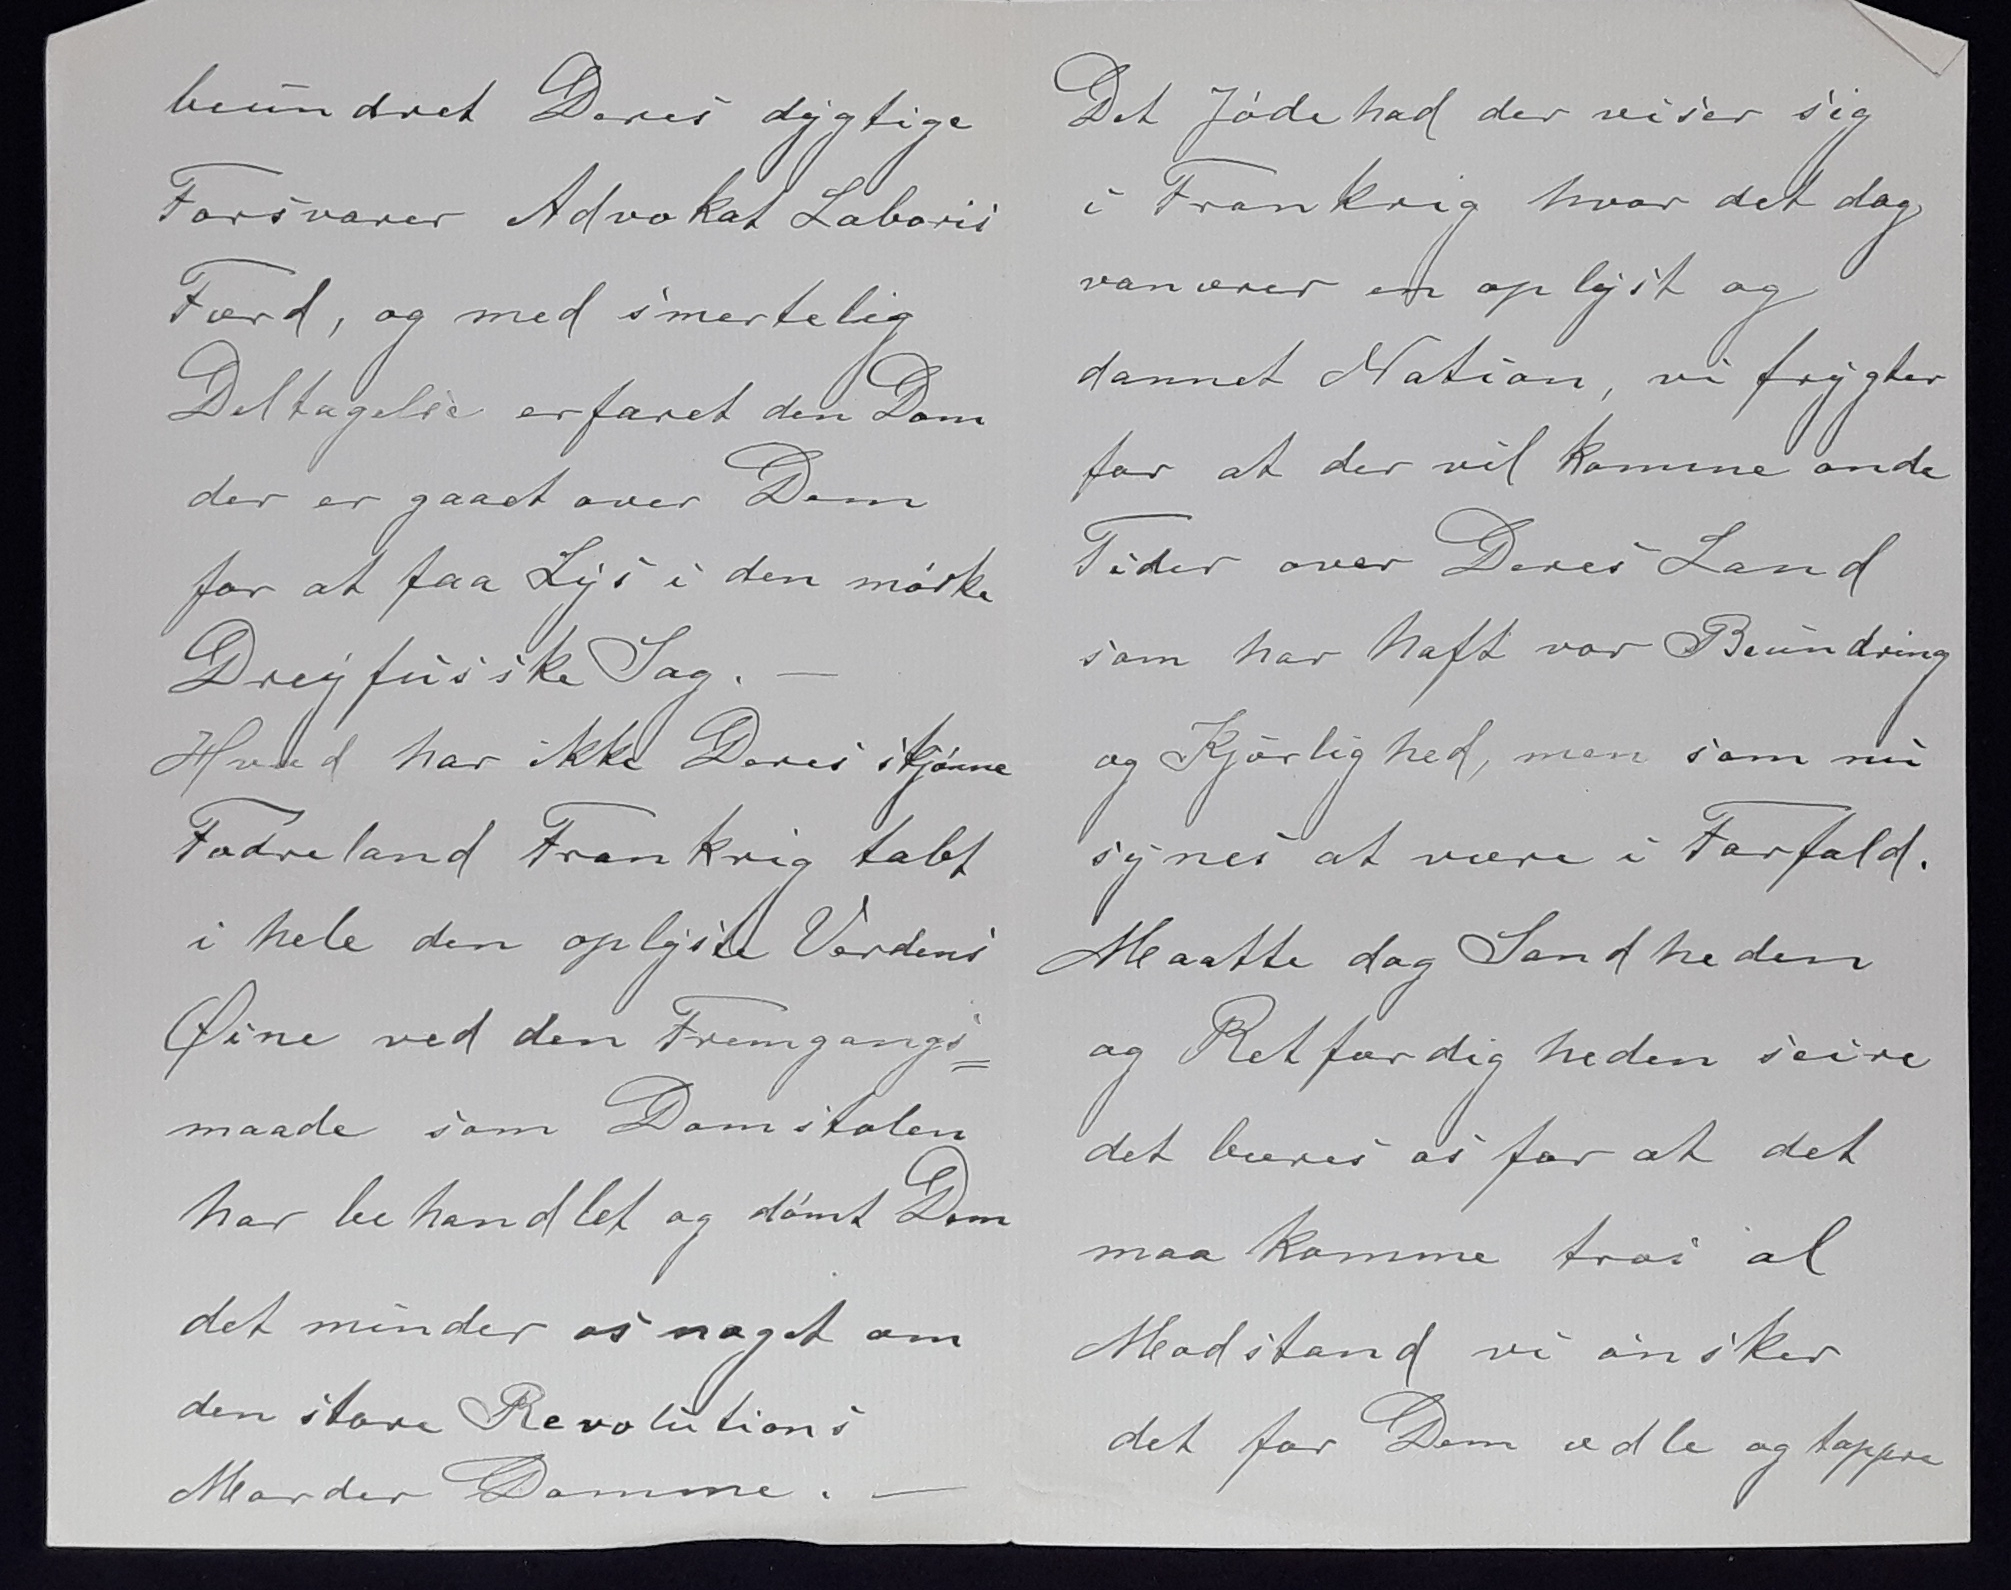 beundret Deres dygtige
Forsvarer Advokat Laboris
Færd, og med smertelig
Deltagelse erfaret den Dom
der er gaaet over Dem
for at faa Lys i den mørke
Dreyfusske Sag. —
Hvad har ikke Deres skjønne
Fædreland Frankrig tabt
i hele den oplyste Verdens
Øine ved den Fremgangs=
maade som Domstolen
har behandlet og dømt Dem
det minder os noget om
den store Revolutions
Morder Domme. —
Det Jødehad der viser sig
i Frankrig hvor det dog
vanærer en oplyst og
dannet Nation, vi frygter
for at der vil komme onde
Tider over Deres Land
som har haft vor Beundring
og Kjærlighed, men som nu
synes at være i Forfald.
Maatte dog Sandheden
og Retfærdigheden seire
det bæres os for at det
maa komme tros al
Modstand vi ønsker
det for Dem ædle og tappre